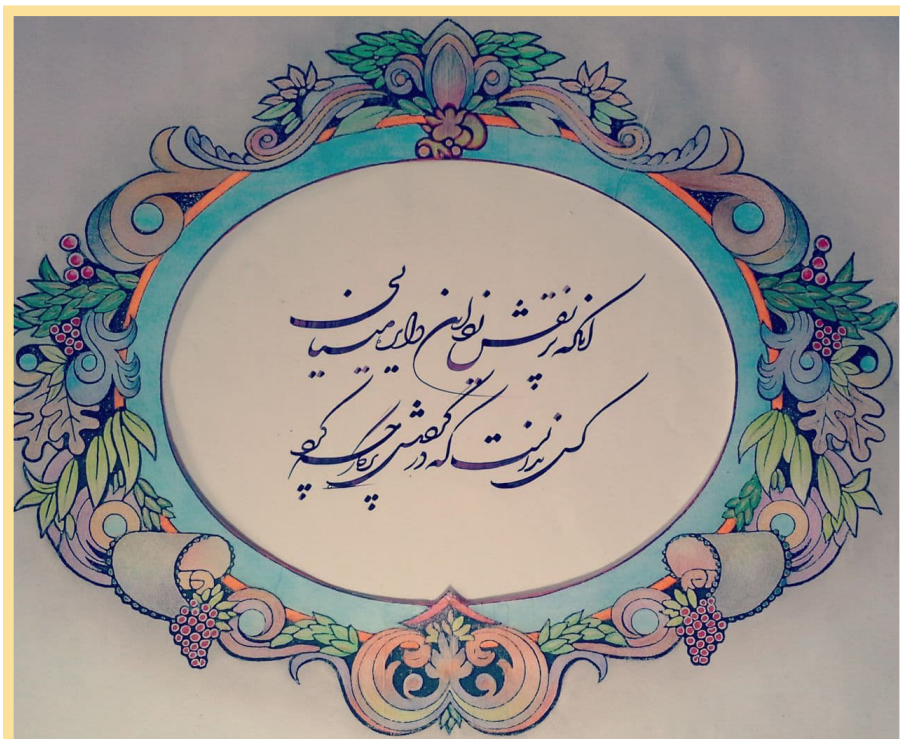 آنکه پر نقش زد این دایره مینایی
کس ندانست که در گردش پرگار چه کرد